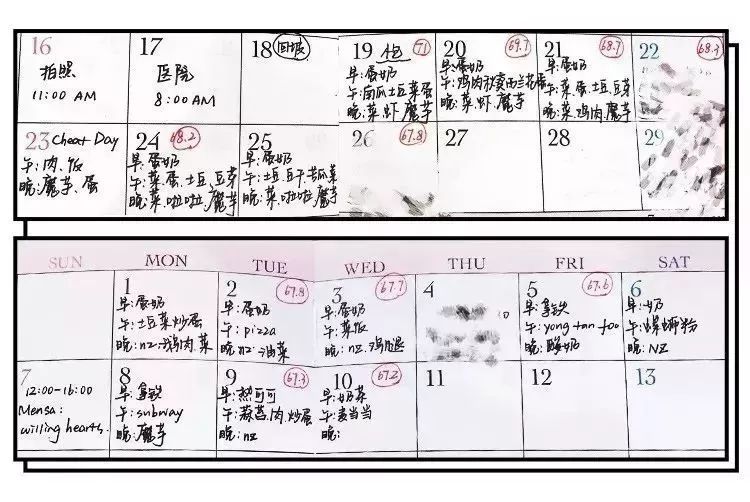 16
拍照
11:00 AM
17
医院
8:00 AM
18 回坡
19 71
早:蛋奶
午:南瓜土豆菜蛋
晚:菜.虾.魔芋
20 69.7
早:蛋奶
午:鸡肉秋葵西兰花
晚:菜.虾.魔芋
21 68.7
早:蛋奶
午:菜.蛋.土豆.豆芽
晚:菜.鸡肉.魔芋
22 68.3
23 Cheat Day
午:肉.饭
晚:魔芋.蛋
24 68.2
早:蛋奶
午:菜.蛋.土豆.豆芽
晚:菜.啦啦.魔芋
25
早:蛋奶
午:土豆.豆干.苦瓜菜
晚:菜.啦啦.魔芋
26 67.8
27
28
29
SUN MON TUE WED THU FRI SAT
1
早:蛋奶
午:土豆菜炒蛋
晚:nz.鸡肉.菜
2 67.8
早:蛋奶
午:pizza
晚:nz.油菜
3 67.7
早:蛋奶
午:菜饭
晚:nz.鸡腿
4
5 67.6
早:拿铁
午:yong tau foo
晚:酸奶
6
早:奶
午:螺蛳粉
晚:NZ
7
12:00-16:00
Mensa:
willing hearts.
8
早:拿铁
午:subway
晚:魔芋
9 67.3
早:热可可
午:蒜苔.肉.炒蛋
晚:nz
10 67.2
早:奶茶
午:麦当当
晚:
11
12
13